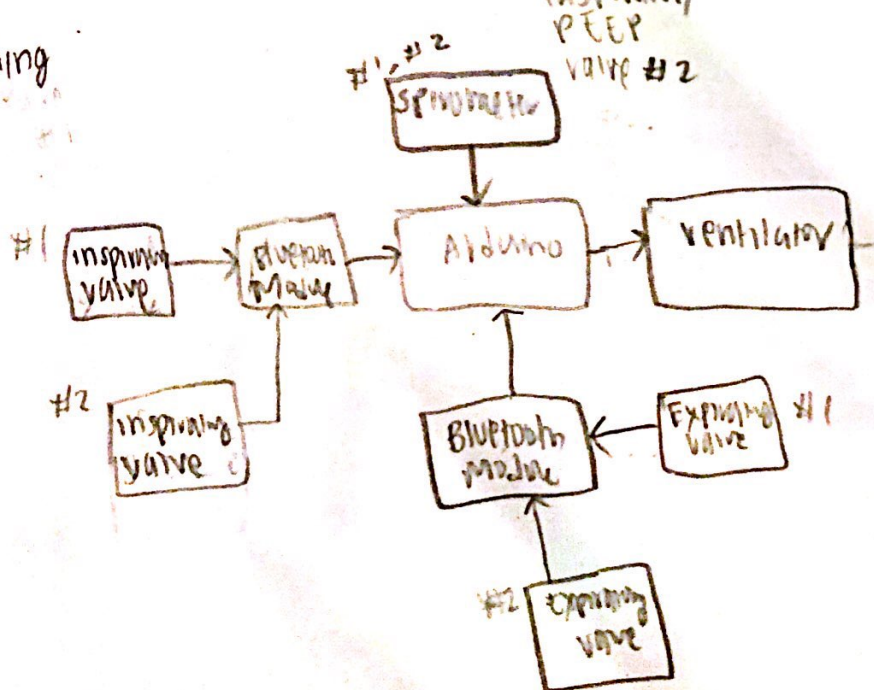 PEEP
valve #2
#1, #2
Spirometer
#1
inspiring
valve
Bluetooth
Module
Arduino
Ventilator
#2
inspiring
valve
Bluetooth
Module
Expiring
valve
#1
#2
Expiring
valve